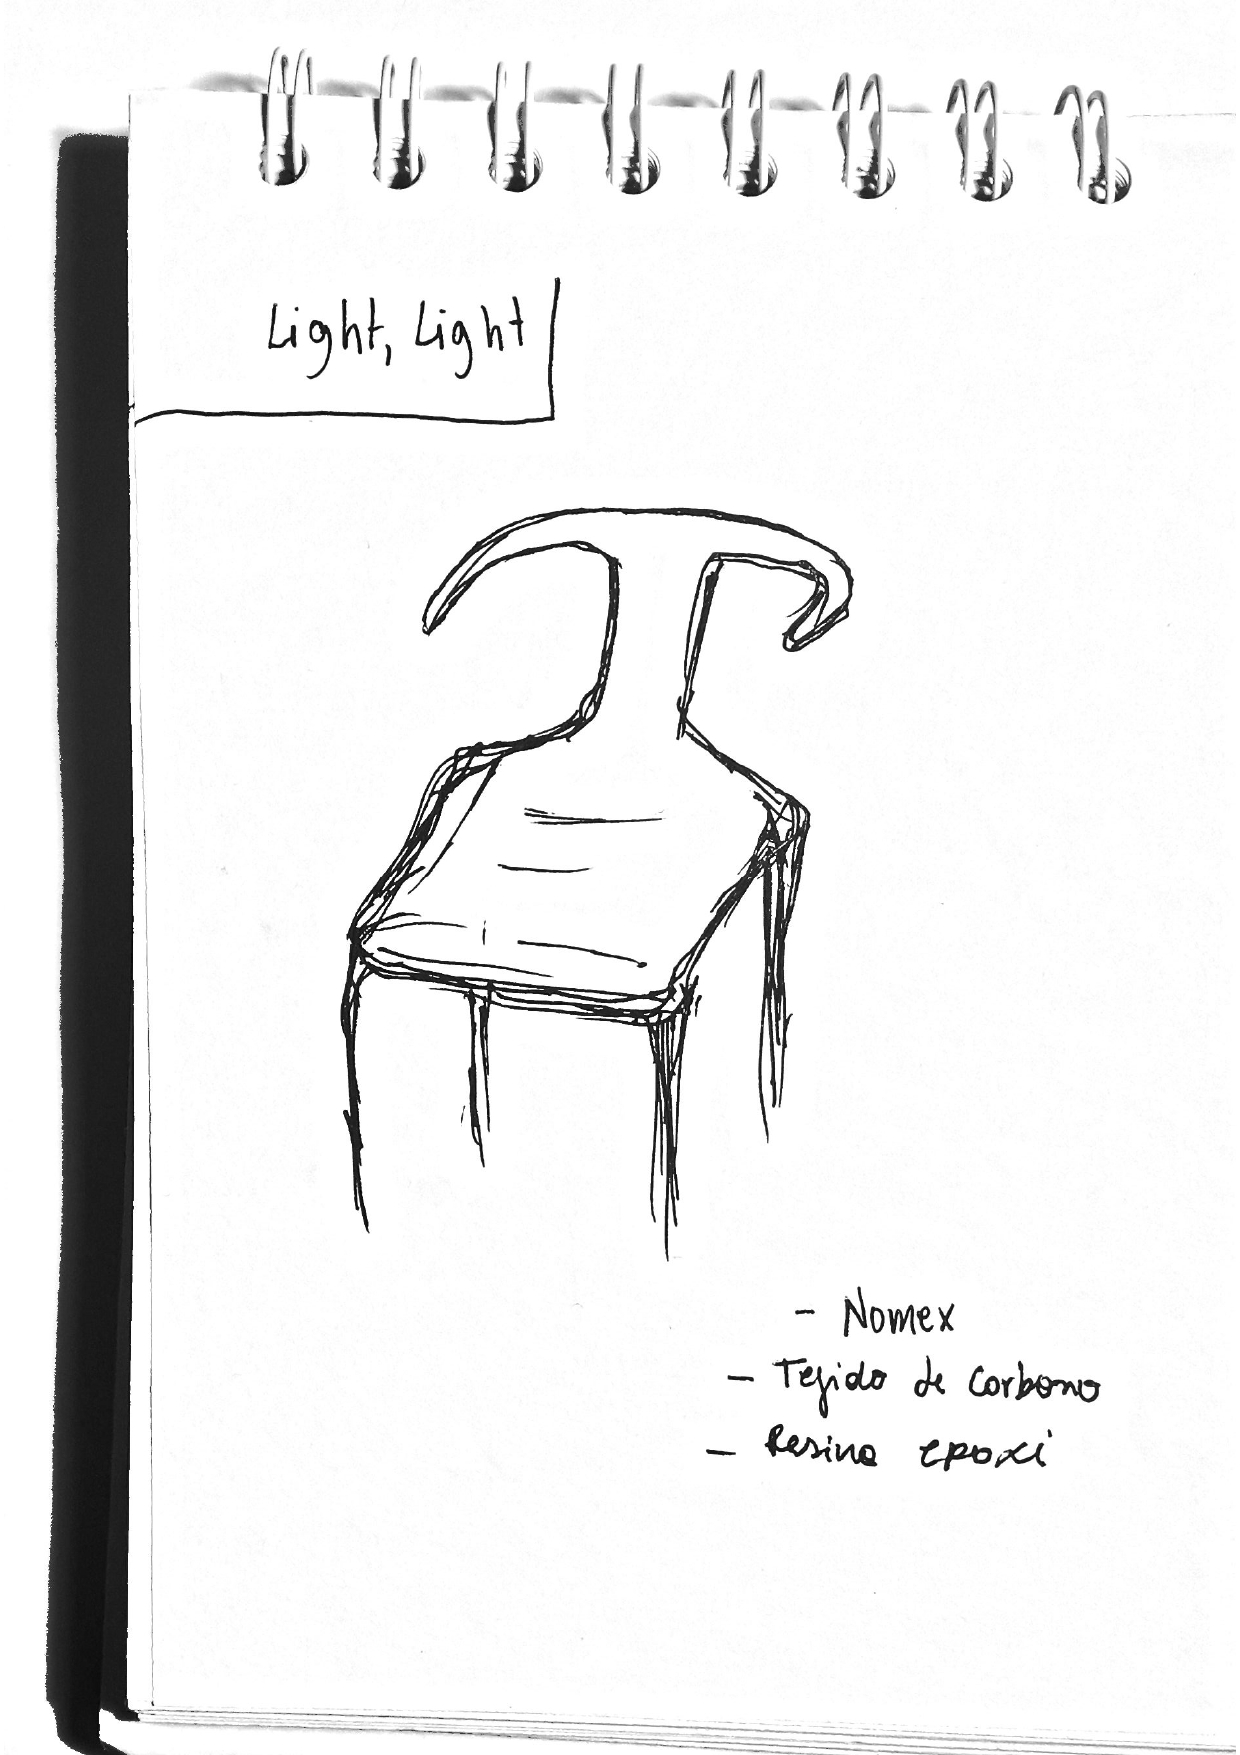 Light, Light
- Nomex
- Tejido de Carbono
- Resina epoxi